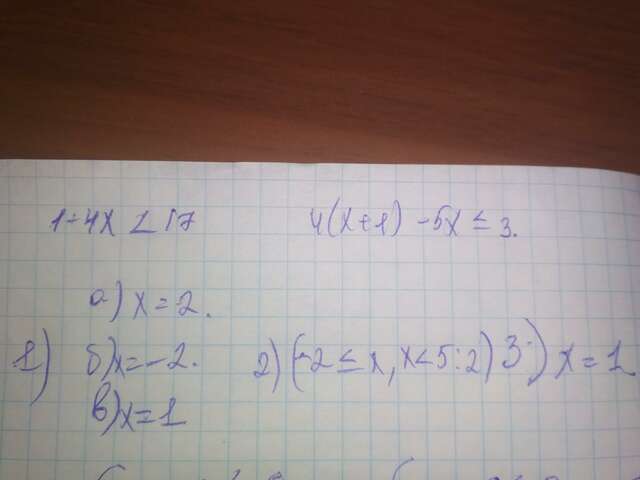 1-4x < 17
4(x+1) -5x ≤ 3.
а) x = 2.
1) б) x = -2.
2) (-2 ≤ x, x < 5:2) 3.) x = 1
в) x = 1